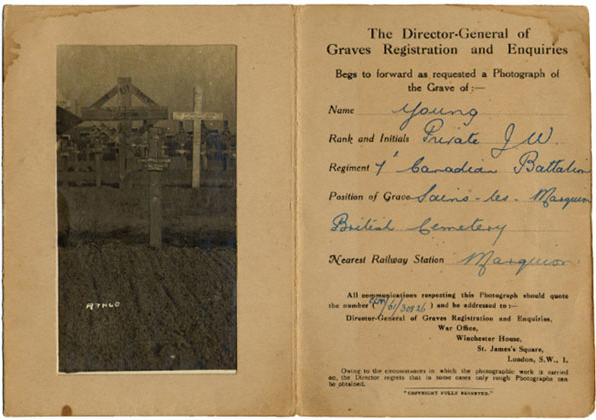 A7460
The Director-General of
Graves Registration and Enquiries
Begs to forward as requested a Photograph of
the Grave of :—
Name Young
Rank and Initials Private J W.
Regiment Canadian Battalion
Position of Grave Sains-les-Marquion
British Cemetery
Nearest Railway Station Marquion
All communications respecting this Photograph should quote
the number ( ) and be addressed to :—
Director-General of Graves Registration and Enquiries,
War Office,
Winchester House,
St. James's Square,
London, S.W., 1.
Owing to the circumstances in which the photographic work is carried
on, the Director regrets that in some cases only rough Photographs can
be obtained.
"COPYRIGHT FULLY RESERVED."